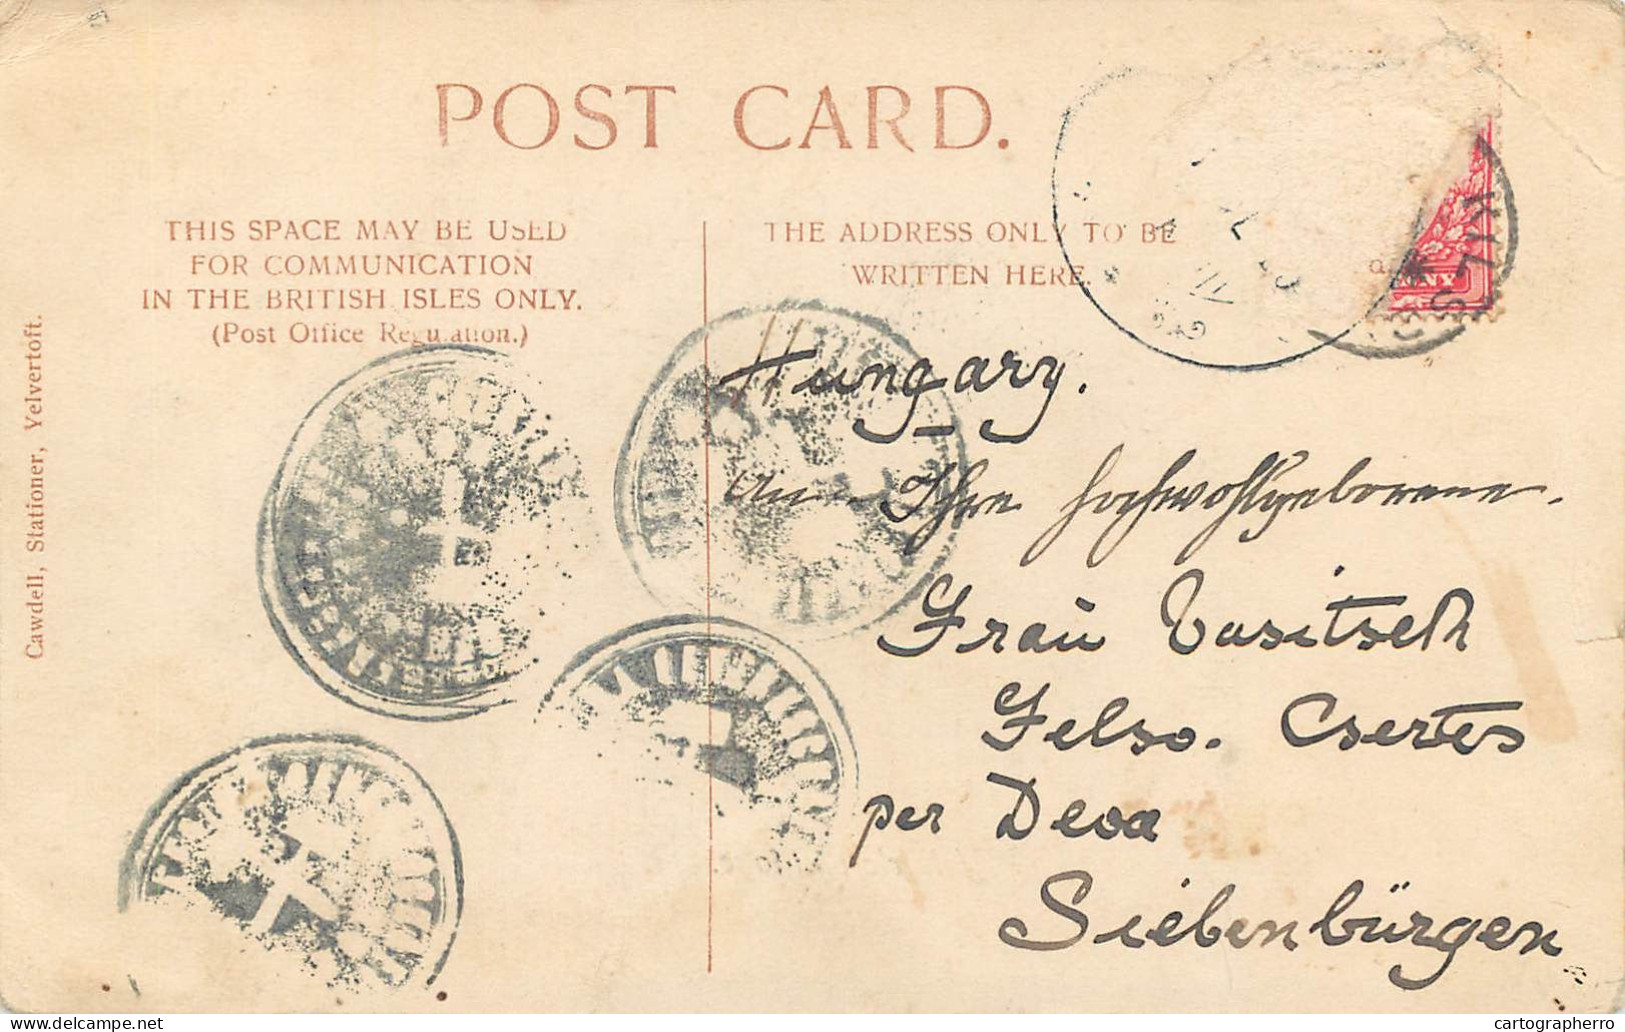 POST CARD.
THIS SPACE MAY BE USED
FOR COMMUNICATION
IN THE BRITISH ISLES ONLY.
(Post Office Regulation.)
THE ADDRESS ONLY TO BE
WRITTEN HERE.
Cawdell, Stationer, Yelvertoft.
KILS
NY
Hungary.
An Ihre Hochwohlgeborene.
Frau Vasitsch
Felso. Csertes
per Deva
Siebenbürgen
cartographerro